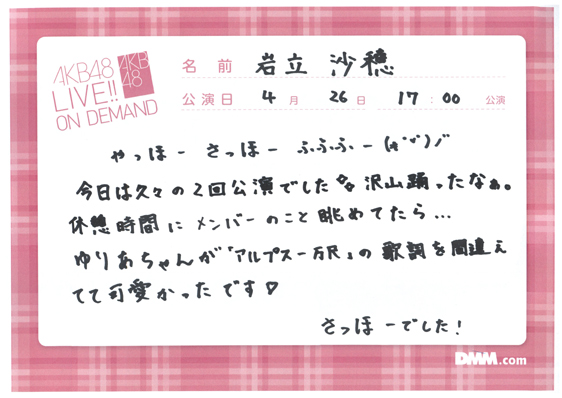 AKB48
LIVE!!
ON DEMAND
AKB
48
名前 岩立 沙穂
公演日 4月 26日 17:00 公演
やっほー さっほー ふふふー
今日は久々の2回公演でした 沢山踊ったなぁ。
休憩時間に メンバーのこと 眺めてたら...
ゆりあちゃんが「アルプス一万尺」の歌詞を間違え
てて可愛かったです♡
さっほーでした!
DMM.com